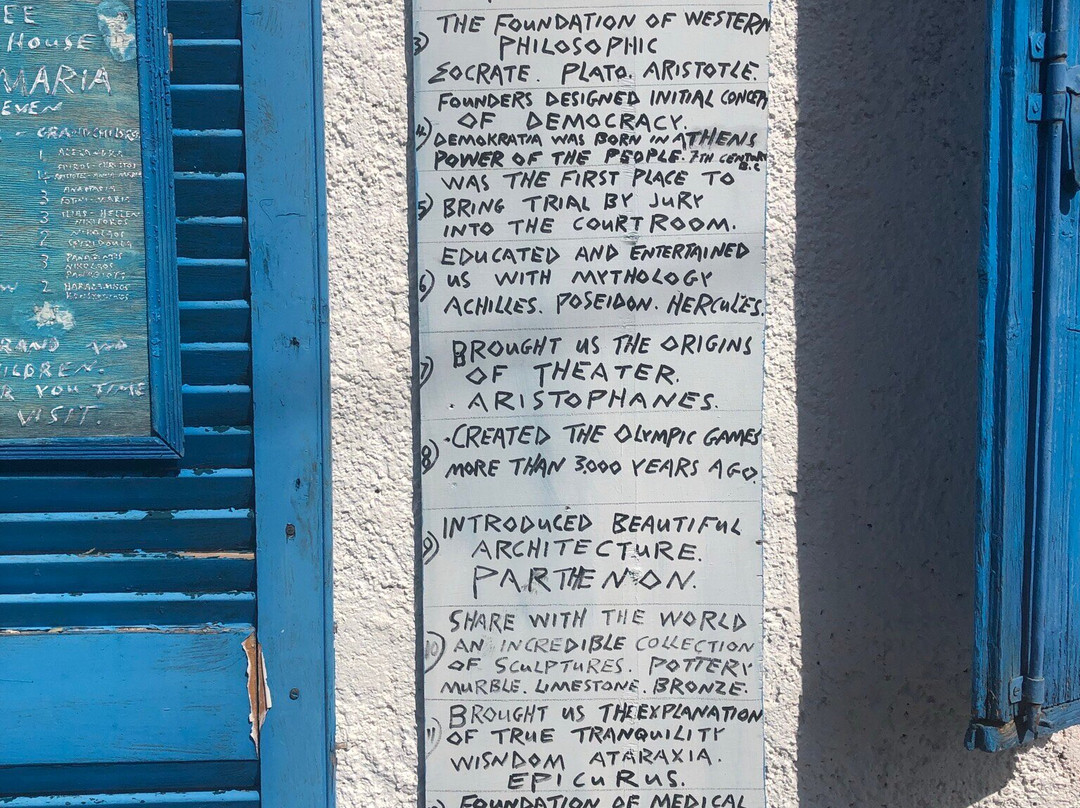 EE
HOUSE
MARIA
EVEN
- GRANDCHILDRE
1
3
3
3
2
3
2
RAND
ILDREN.
R YOU TIME
VISIT.
THE FOUNDATION OF WESTERN
3) PHILOSOPHIC
SOCRATE. PLATO. ARISTOTLE.
FOUNDERS DESIGNED INITIAL CONCEP
OF DEMOCRACY.
4) DEMOKRATIA WAS BORN IN ATHENS
POWER OF THE PEOPLE. 7TH CENTURY
B.C
WAS THE FIRST PLACE TO
5) BRING TRIAL BY JURY
INTO THE COURT ROOM.
EDUCATED AND ENTERTAINED
6) US WITH MYTHOLOGY
ACHILLES. POSEIDON. HERCULES.
BROUGHT US THE ORIGINS
7) OF THEATER.
. ARISTOPHANES.
.CREATED THE OLYMPIC GAMES
8) MORE THAN 3.000 YEARS AGO.
INTRODUCED BEAUTIFUL
9) ARCHITECTURE.
PARTHENON.
SHARE WITH THE WORLD
10) AN INCREDIBLE COLLECTION
OF SCULPTURES. POTTERY
MURBLE. LIMESTONE. BRONZE.
BROUGHT US THE EXPLANATION
11) OF TRUE TRANQUILITY
WISNDOM ATARAXIA.
EPICURUS.
FOUNDATION OF MEDICAL